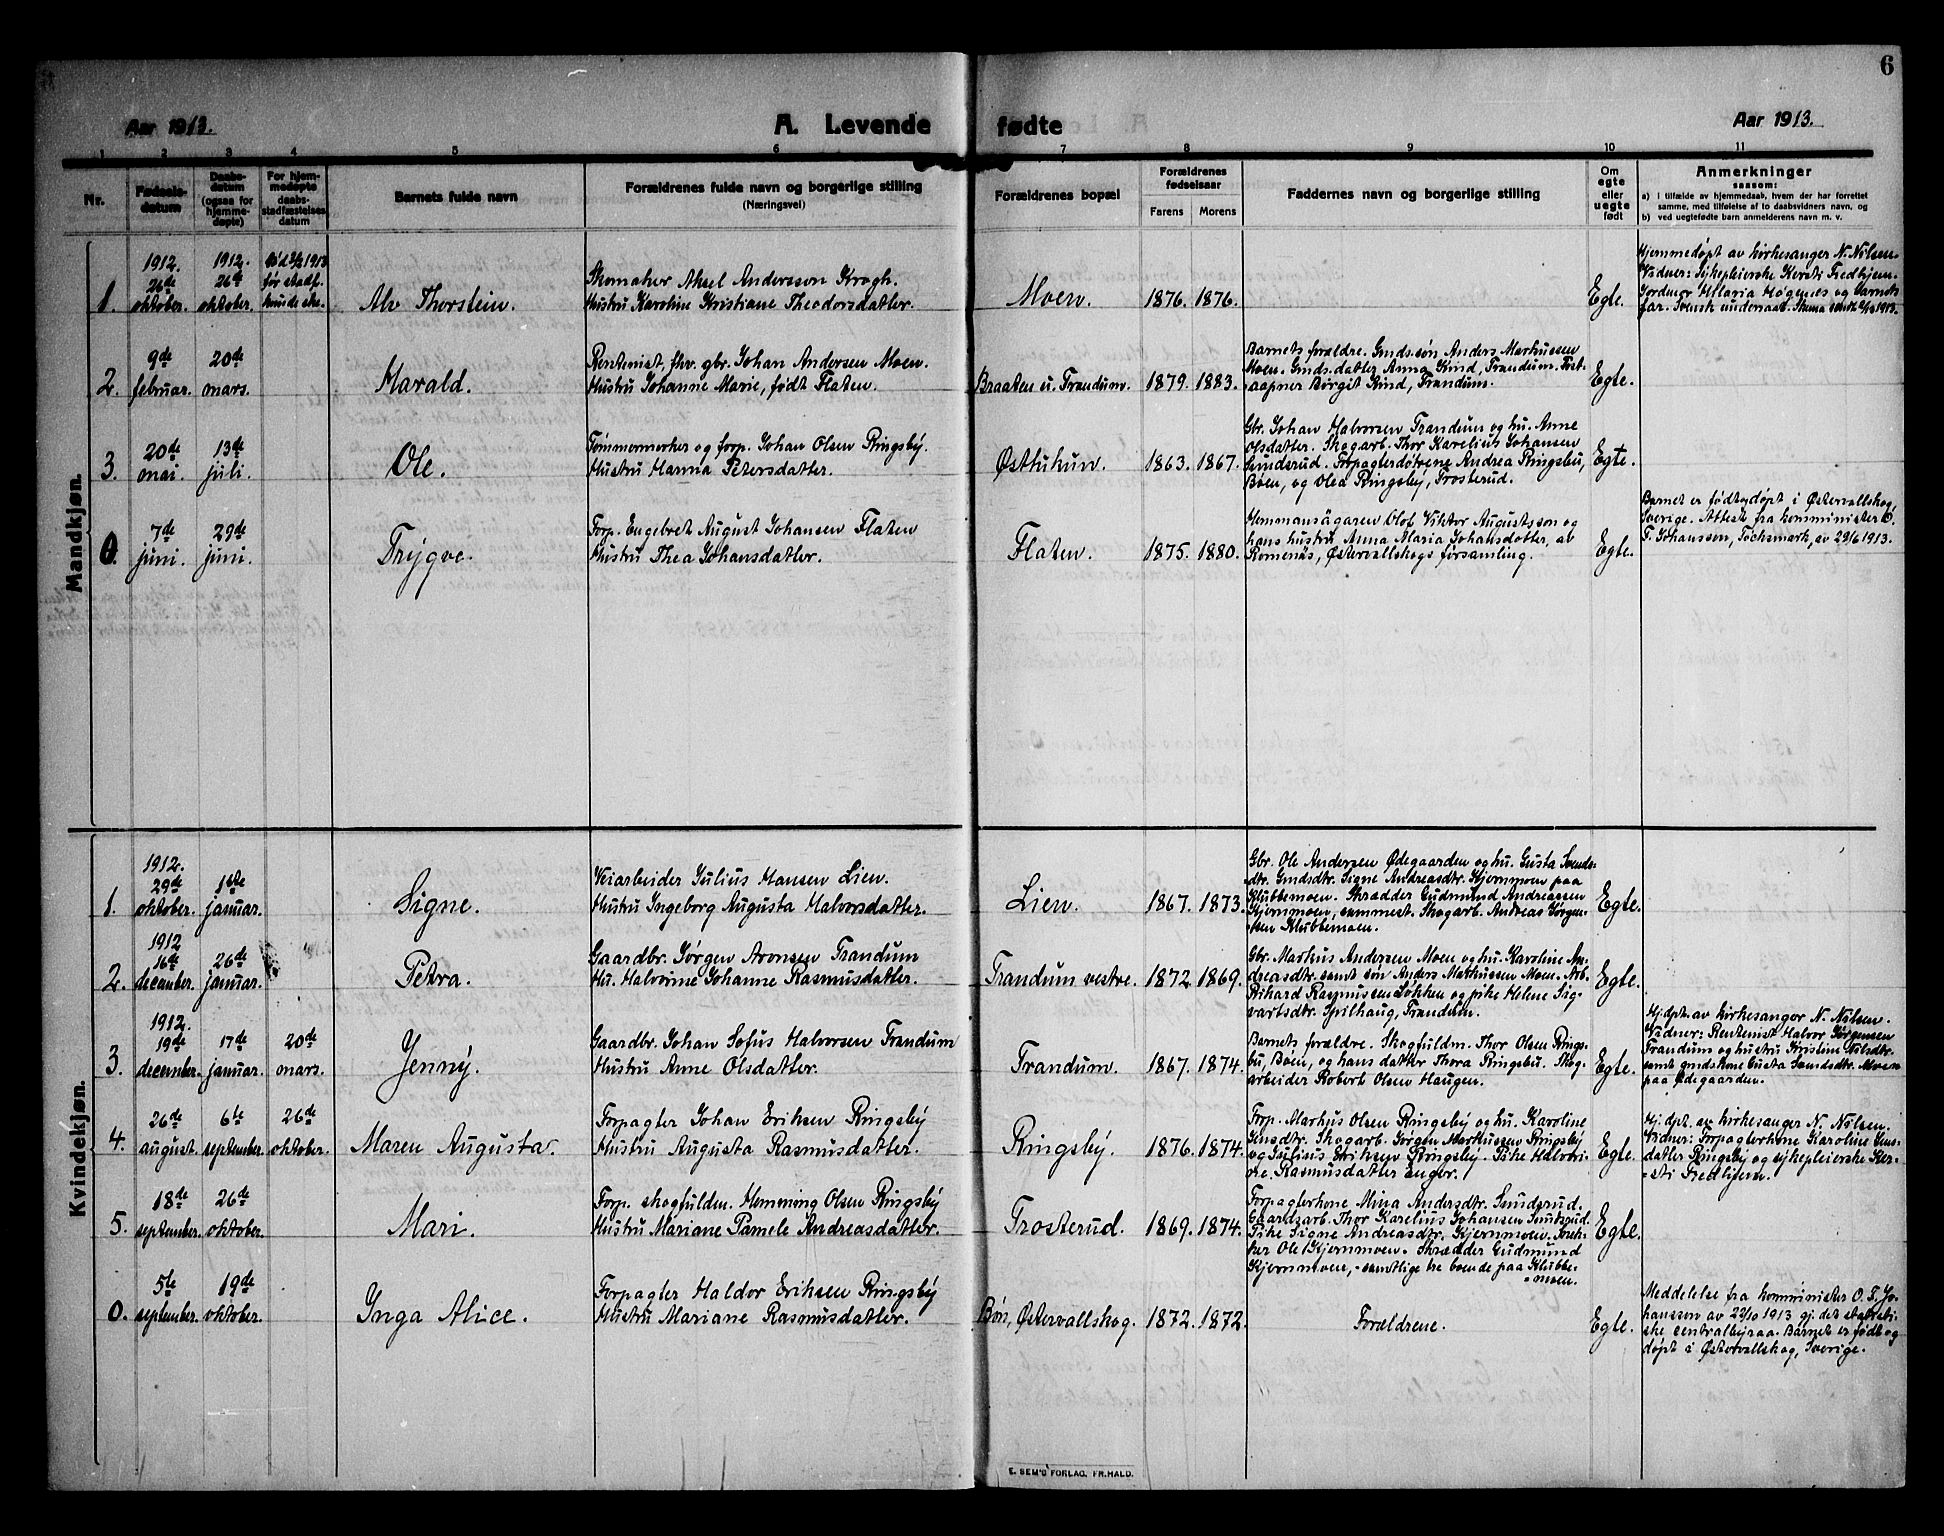 6
Aar 1913.
A. Levende fødte
Aar 1913.
1 2 3 4 5 6 7 8 9 10 11
Nr.
Fødsels-
datum
Daabs-
datum
(ogsaa for
hjemme-
døpte)
For hjem-
medøpte
daabs-
stadfæstelses
datum
Barnets fulde navn
Forældrenes fulde navn og borgerlige stilling
(Næringsvei)
Forældrenes bopæl
Forældrenes
fødselsaar
Farens Morens
Faddernes navn og borgerlige stilling
Om
egte
eller
uegte
født
Anmerkninger
saasom:
a) i tilfælde av hjemmedaab, hvem der har forrettet
samme, med tilføielse af to daabsvidners navn, og
b) ved uegtefødte barn anmelderens navn m. v.
Mandkjøn.
1.
1912.
26de
oktober.
1912.
26de
oktober.
1913
før stadf.
Alv Thorstein.
Skomaker Aksel Andersson Krogh.
Hustru Karoline Kristiane Theodorsdatter.
Moen.
1876. 1876.
Egte.
Hjemmedøpt av kirkesanger N. Nilsen.
Vidner: Sykepleierske Kersti Fredhjem.
Jordmor Maria Høgenes og barnets
far. Svensk undersaat.
2.
9de
februar.
20de
mars.
Harald.
Rentenist, fhv. gbr. Johan Andersen Moen.
Hustru Johanne Marie, født Flaten.
Braaten u. Trandum.
1879. 1883.
Barnets forældre. Gmds.søn Anders Markussen
Moen. Gmds.datter Anna Kind, Trandum. Post-
aapner Borgit Kind, Trandum.
Egte.
3.
20de
mai.
13de
juli.
Ole.
Tømmermerker og forp. Johan Olsen Ringsby.
Hustru Hanna Petersdatter.
Østtukun.
1863. 1867.
Gbr. Johan Halvorsen Trandum og hu. Anne
Olsdatter. Skogarb. Thor Karelius Johansen
Smuderud. Forpagterdøtrene Andrea Ringsby,
Boen, og Olea Ringsby, Trosterud.
Egte.
0.
7de
juni.
29de
juni.
Trygve.
Forp. Engebret August Johansen Flaten
Hustru Thea Johansdatter.
Flaten.
1875. 1880.
Hemmansägaren Olof Viktor Augustsson og
hans hustru Anna Maria Johansdotter, av
Romenäs, Østervallskogs församling.
Egte.
Barnet er født og døpt i Østervallskog,
Sverige. Attest fra komminister O.
T. Johansson, Töcksmark, av 29/6 1913.
Kvindekjøn.
1.
1912.
29de
oktober.
1ste
januar.
Signe.
Veiarbeider Julius Hansen Lien.
Hustru Ingeborg Augusta Halvorsdatter.
Lien.
1867. 1873.
Gbr. Ole Andersen Ødegaarden og hu. Gusta Svends-
dtr. Gmdsdtr. Signe Andreasdtr. Kjernmoen paa
Klubbemoen. Skrædder Gudmund Andreassen
Kjernmoen, sammest. Skogarb. Andreas Jørgen-
sen Klubbemoen.
Egte.
2.
1912
16de
december.
26de
januar.
Petra.
Gaardbr. Jørgen Aronsen Trandum
Hu. Halvorine Johanne Rasmusdatter.
Trandum vestre.
1872 1869.
Gbr. Markus Andersen Moen og hu. Karoline An-
dreasdtr. samt søn Anders Markussen Moen. Arb.
Rikard Rasmussen Løkken og pike Helene Sig-
vartsdtr. Spilhaug, Trandum.
Egte.
3.
1912.
19de
december.
17de
januar.
20de
mars.
Jenny.
Gaardbr. Johan Sofus Halvorsen Trandum
Hustru Anne Olsdatter.
Trandum.
1867. 1874.
Barnets forældre. Skogfuldm. Thor Olsen Rings-
by, Boen, og hans datter Thora Ringsby. Skog-
arbeider Robert Olsen Haugen.
Egte.
Hj.døpt. av kirkesanger N. Nilsen.
Vidner: Rentenist Halvor Jørgensen
Trandum og hustru Kristine Nilsdtr.
samt gmdskone Gusta Svendsdtr. Moen
paa Ødegaarden.
4.
26de
august.
6te
september.
26de
oktober.
Maren Augusta.
Forpagter Johan Eriksen Ringsby
Hustru Augusta Rasmusdatter.
Ringsby.
1876. 1874.
Forp. Markus Olsen Ringsby og hu. Karoline
Gmsdtr. Skogarb. Jørgen Markussen Ringsby
og Julius Eriksen Ringsby. Pike Halvori-
ne Rasmusdatter Enger.
Egte.
Hj.døpt. av kirkesanger N. Nilsen.
Vidner: Forpagterkone Karoline Gms-
datter Ringsby og sykepleierske Ker-
sti Fredhjem.
5.
18de
september.
26de
oktober.
Mari.
Forp. skogfuldm. Hemming Olsen Ringsby
Hustru Mariane Pamele Andreasdatter.
Trosterud.
1869. 1874.
Forpagterkone Mina Andersdtr. Smuderud.
Gaardsarb. Thor Karelius Johansen Smuderud.
Pike Signe Andreasdtr. Kjernmoen.
Ole Kjernmoen. Skrædder Gudmund
Kjernmoen, - samtlige tre boende paa Klubbe-
moen.
Egte.
0.
5te
september.
19de
oktober.
Inga Alice.
Forpagter Haldor Eriksen Ringsby
Hustru Mariane Rasmusdatter.
Bøn, Østervallskog.
1872. 1872.
Forældrene.
Egte.
Meddelelse fra komminister O. T. Jo-
hanssen av 22/10 1913 gj. det statisti-
ske centralbyraa. Barnet er født og
døpt i Østervallskog, Sverige.
E. SEM'S FORLAG, FR.HALD.